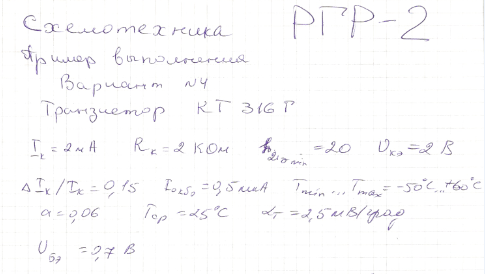 Схемотехника РГР-2
Пример выполнения
Вариант №4
Транзистор КТ 316 Г
Iк = 2 мА Rк = 2 КОм h21э min = 20 Uкэ = 2 В
ΔIк/Iк = 0,15 Iокбо = 0,5 мкА Tmin ... Tmax = -50°C...+60°C
a = 0,06 Tср = 25°C αT = 2,5 мВ/град
Uбэ = 0,7 В